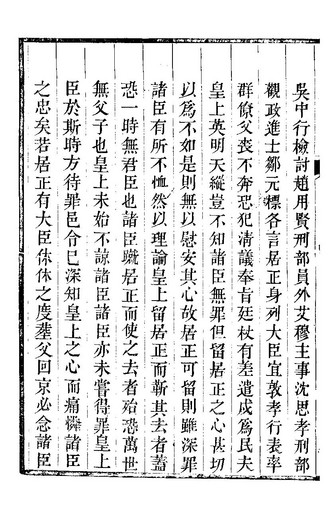 吳中行檢討趙用賢刑部員外艾穆主事沈思孝刑部
觀政進士鄒元標各言居正身列大臣宜敦孝行表率
群僚父喪不奔恐犯清議奉旨廷杖有差遣戍爲民夫
皇上英明天縱豈不知諸臣無罪但留居正之心甚切
以爲不如是則無以慰安其心故居正可留則雖深罪
諸臣有所不恤然以理論皇上留居正而斬其去者蓋
恐一時無君也諸臣駁居正而使之去者殆恐萬世
無父子也皇上未始不諒諸臣諸臣亦未嘗得罪皇上
臣於斯時方待罪邑令已深知皇上之心而痛憐諸臣
之忠矣若居正有大臣休休之度塟父回京必念諸臣